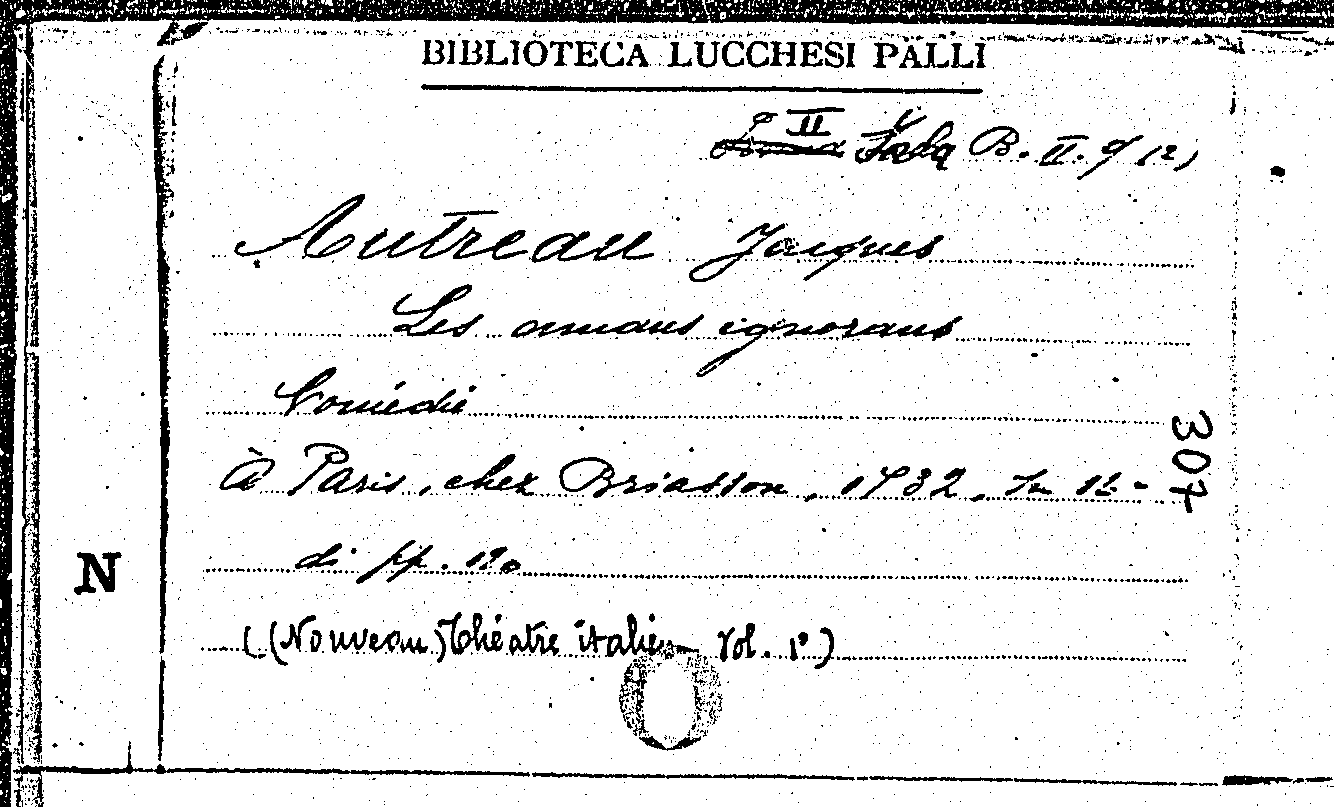 BIBLIOTECA LUCCHESI PALLI
II Sala B. II. 9/12)
Autreau Jacques
Les amans ignorans
Comédie
à Paris, chez Briasson, 1732. In 12-
di pp. 120
((Nouveau) Théatre italien Vol. 1°)
307
N